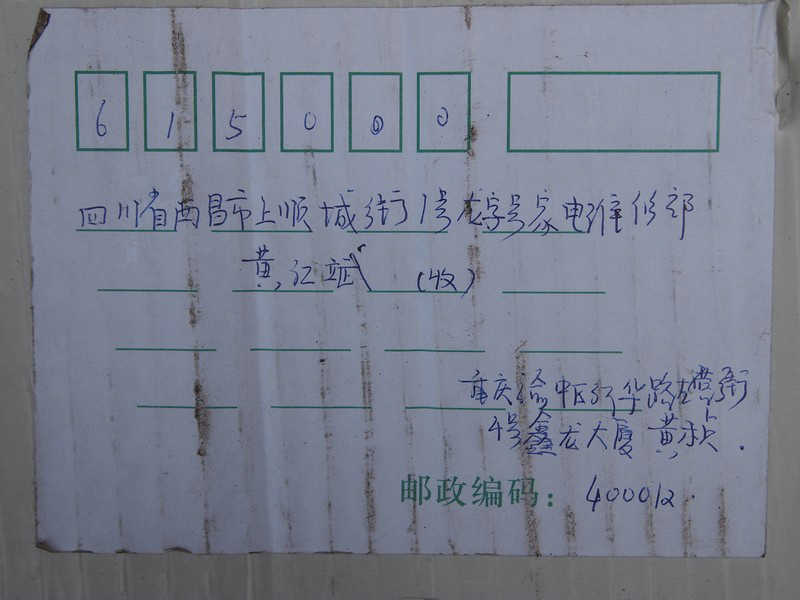 615000
四川省西昌市上顺城街1号龙字号家电维修部
黄江斌(收)
重庆渝中区华路街
4号鑫龙大厦 黄
邮政编码: 400012